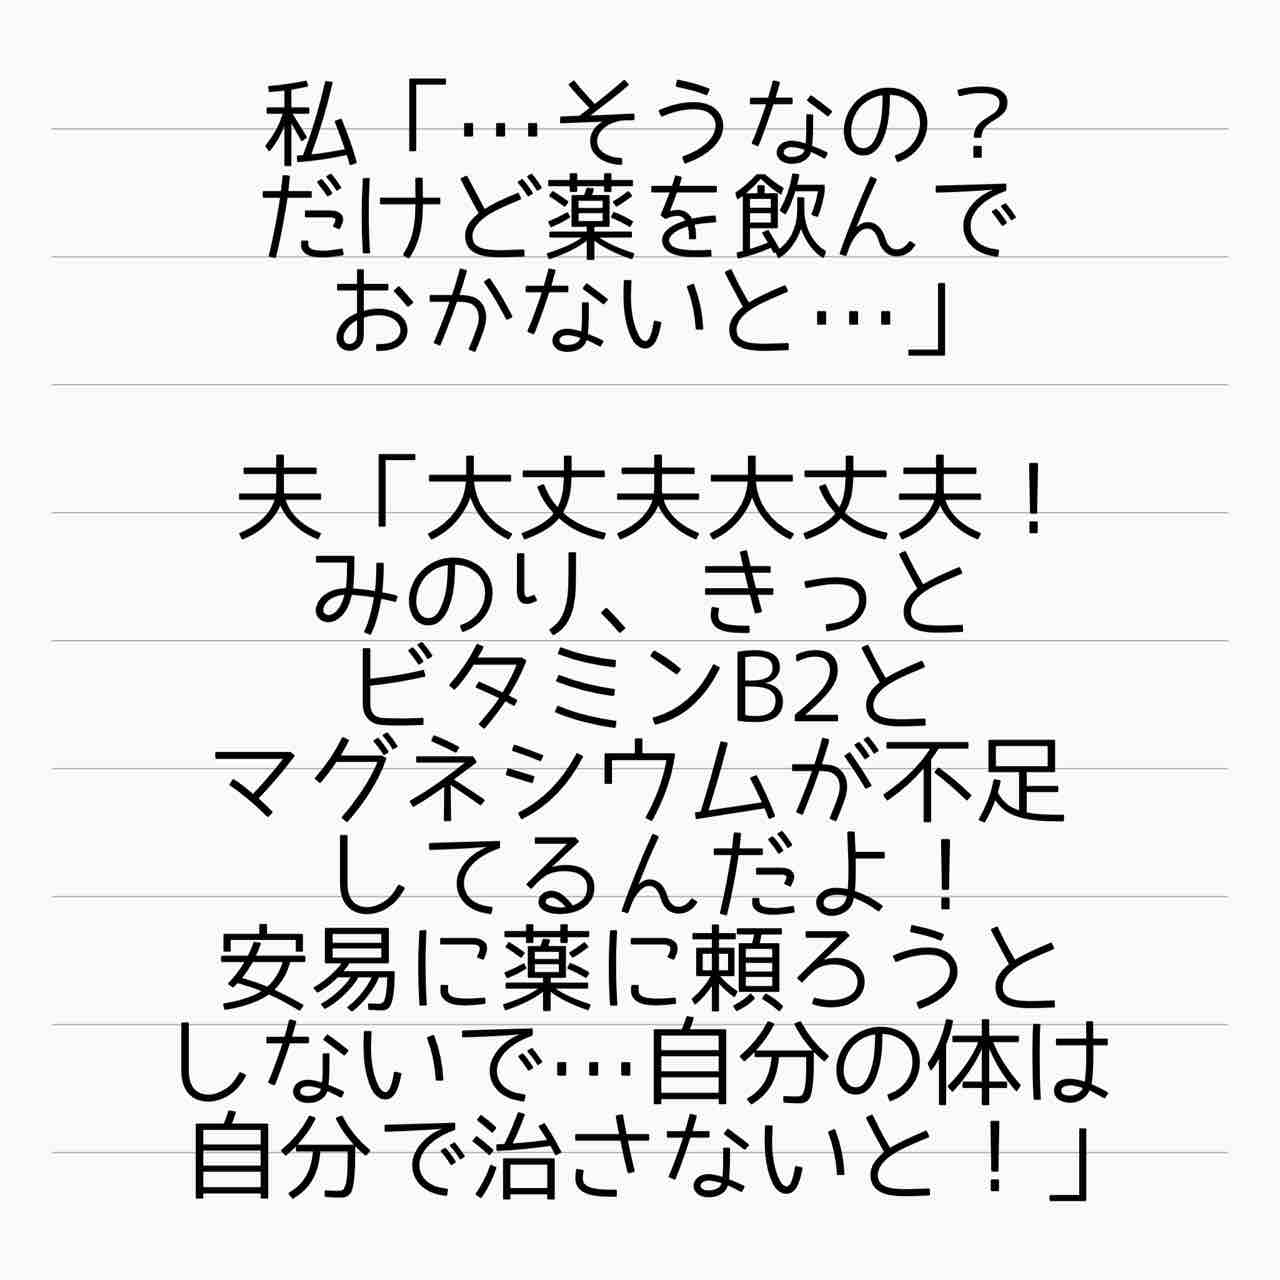 私「…そうなの？
だけど薬を飲んで
おかないと…」
夫「大丈夫大丈夫！
みのり、きっと
ビタミンB2と
マグネシウムが不足
してるんだよ！
安易に薬に頼ろうと
しないで…自分の体は
自分で治さないと！」